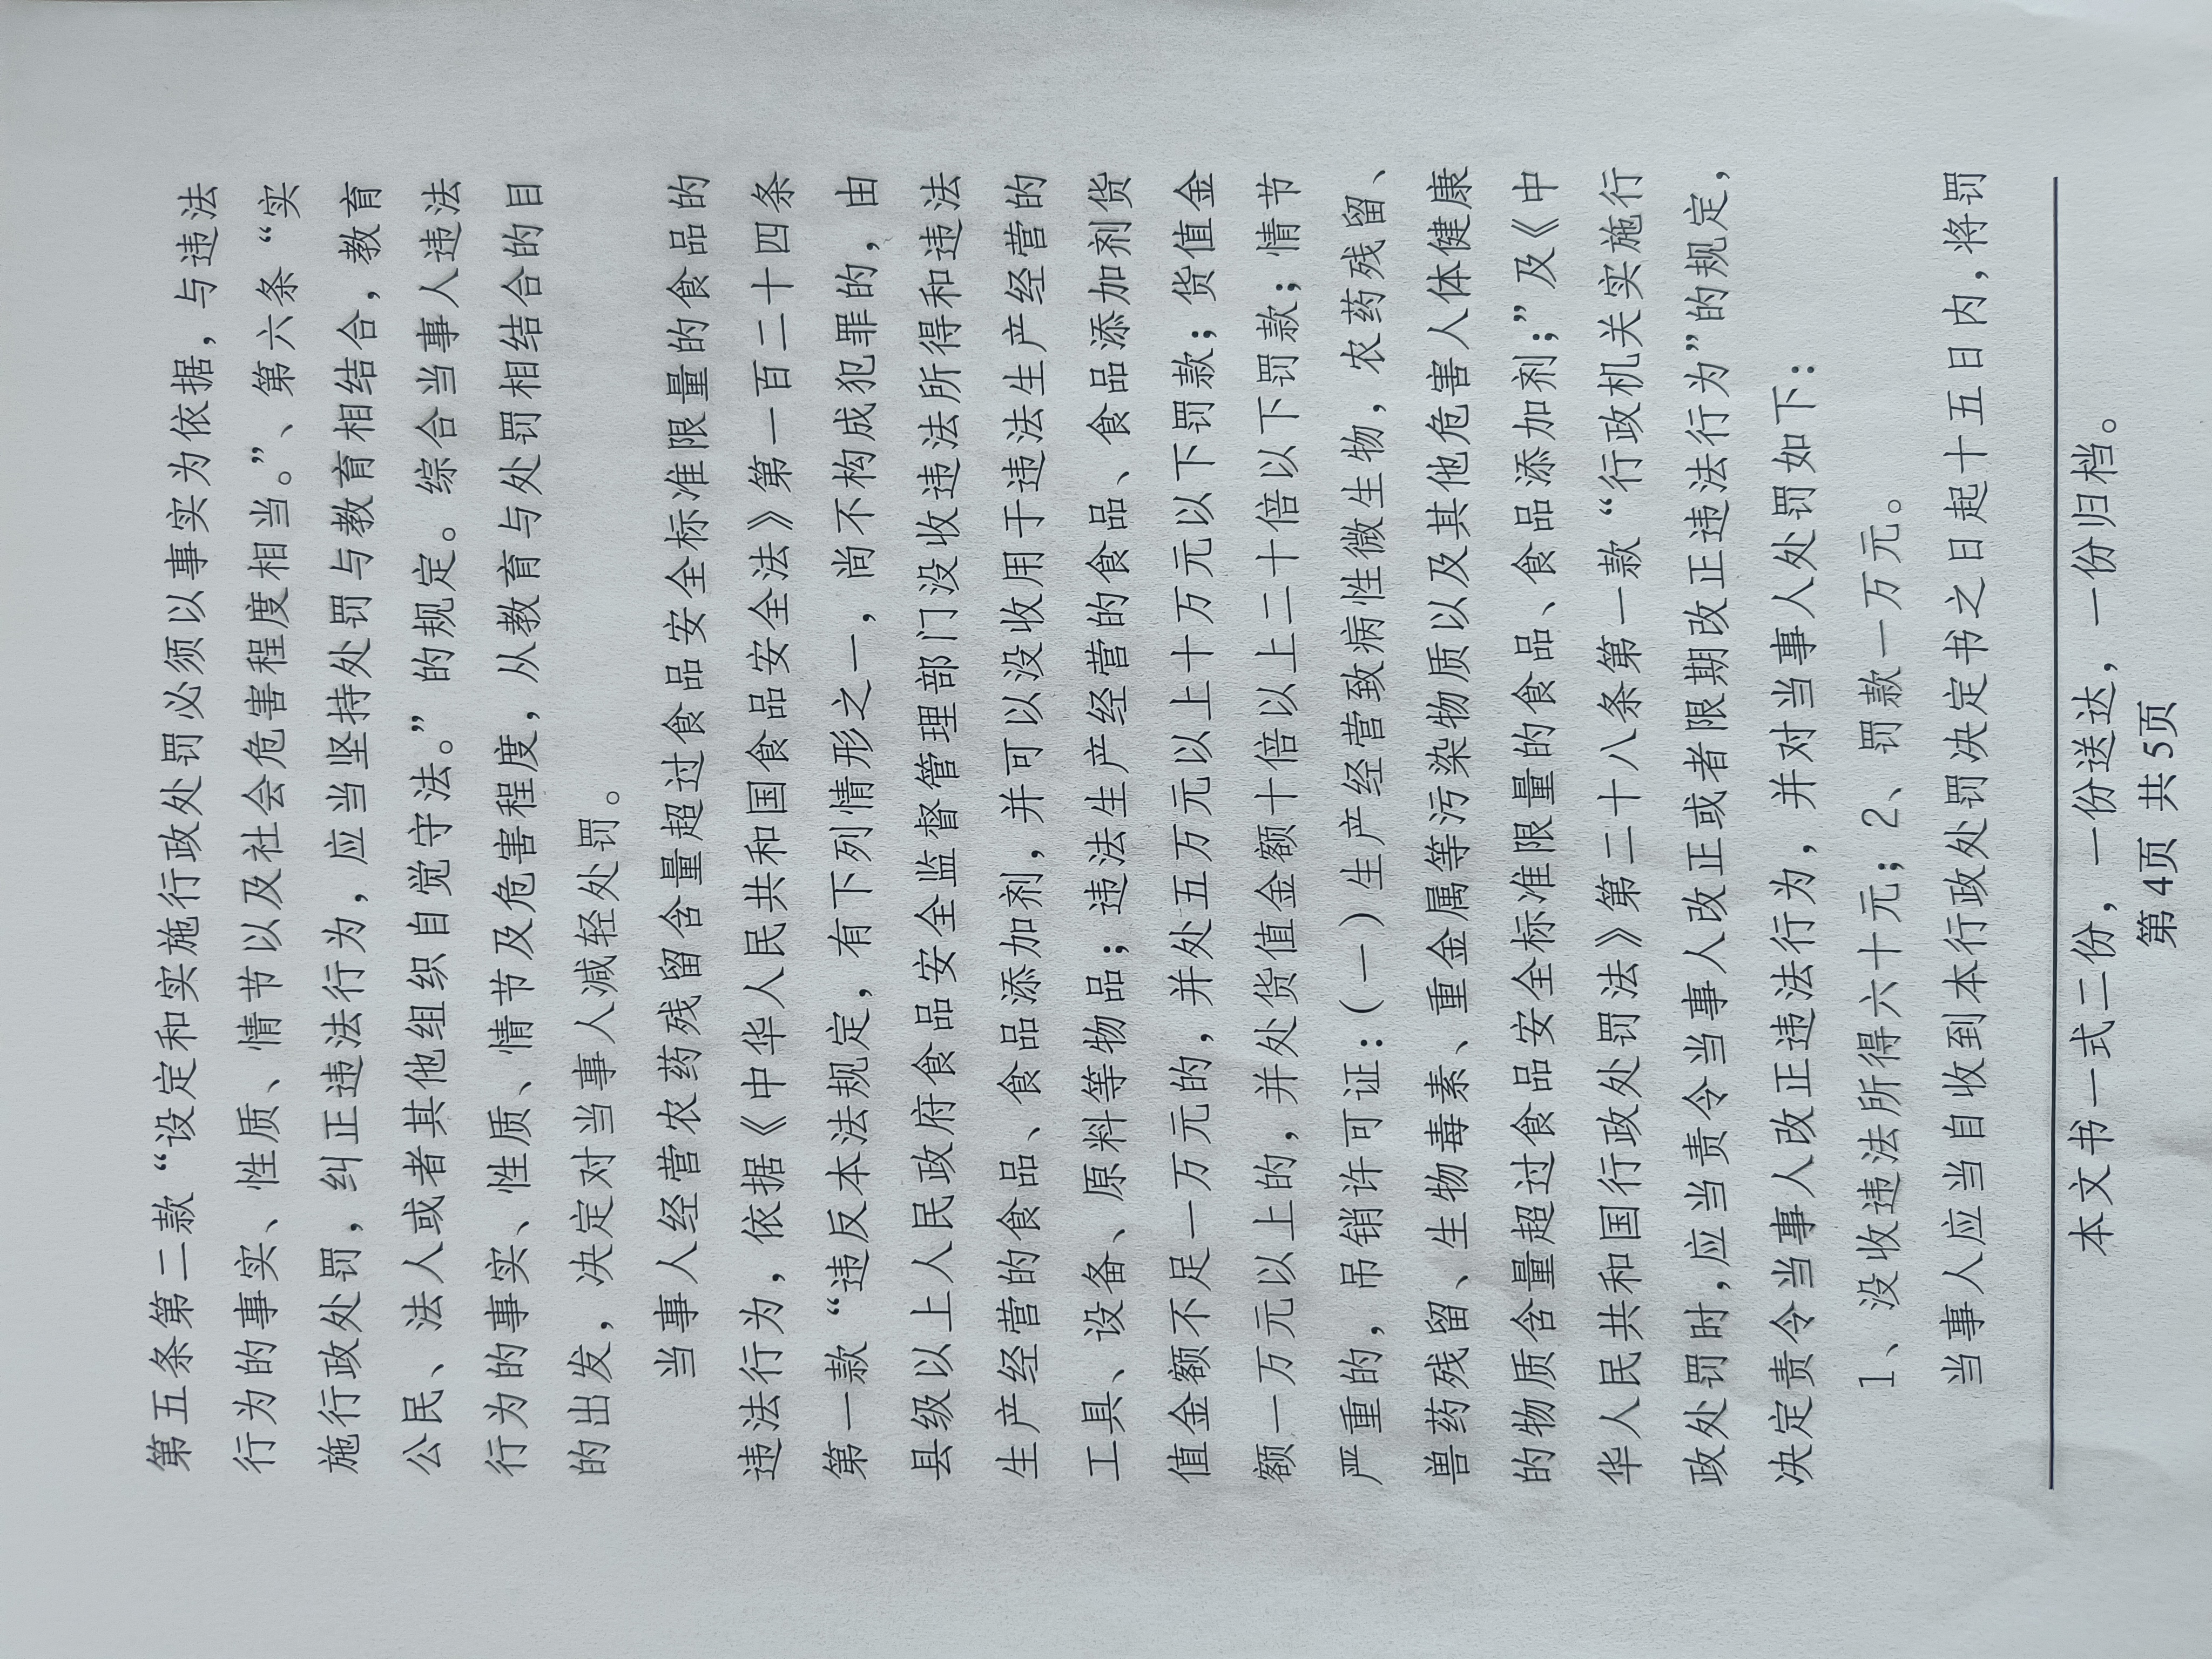 第五条第二款“设定和实施行政处罚必须以事实为依据，与违法
行为的事实、性质、情节以及社会危害程度相当。”、第六条“实
施行政处罚，纠正违法行为，应当坚持处罚与教育相结合，教育
公民、法人或者其他组织自觉守法。”的规定。综合当事人违法
行为的事实、性质、情节及危害程度，从教育与处罚相结合的目
的出发，决定对当事人减轻处罚。
当事人经营农药残留含量超过食品安全标准限量的食品的
违法行为，依据《中华人民共和国食品安全法》第一百二十四条
第一款“违反本法规定，有下列情形之一，尚不构成犯罪的，由
县级以上人民政府食品安全监督管理部门没收违法所得和违法
生产经营的食品、食品添加剂，并可以没收用于违法生产经营的
工具、设备、原料等物品；违法生产经营的食品、食品添加剂货
值金额不足一万元的，并处五万元以上十万元以下罚款；货值金
额一万元以上的，并处货值金额十倍以上二十倍以下罚款；情节
严重的，吊销许可证：（一）生产经营致病性微生物，农药残留、
兽药残留、生物毒素、重金属等污染物质以及其他危害人体健康
的物质含量超过食品安全标准限量的食品、食品添加剂；”及《中
华人民共和国行政处罚法》第二十八条第一款“行政机关实施行
政处罚时，应当责令当事人改正或者限期改正违法行为”的规定，
决定责令当事人改正违法行为，并对当事人处罚如下：
1、没收违法所得六十元；2、罚款一万元。
当事人应当自收到本行政处罚决定书之日起十五日内，将罚
本文书一式二份，一份送达，一份归档。
第4页 共5页